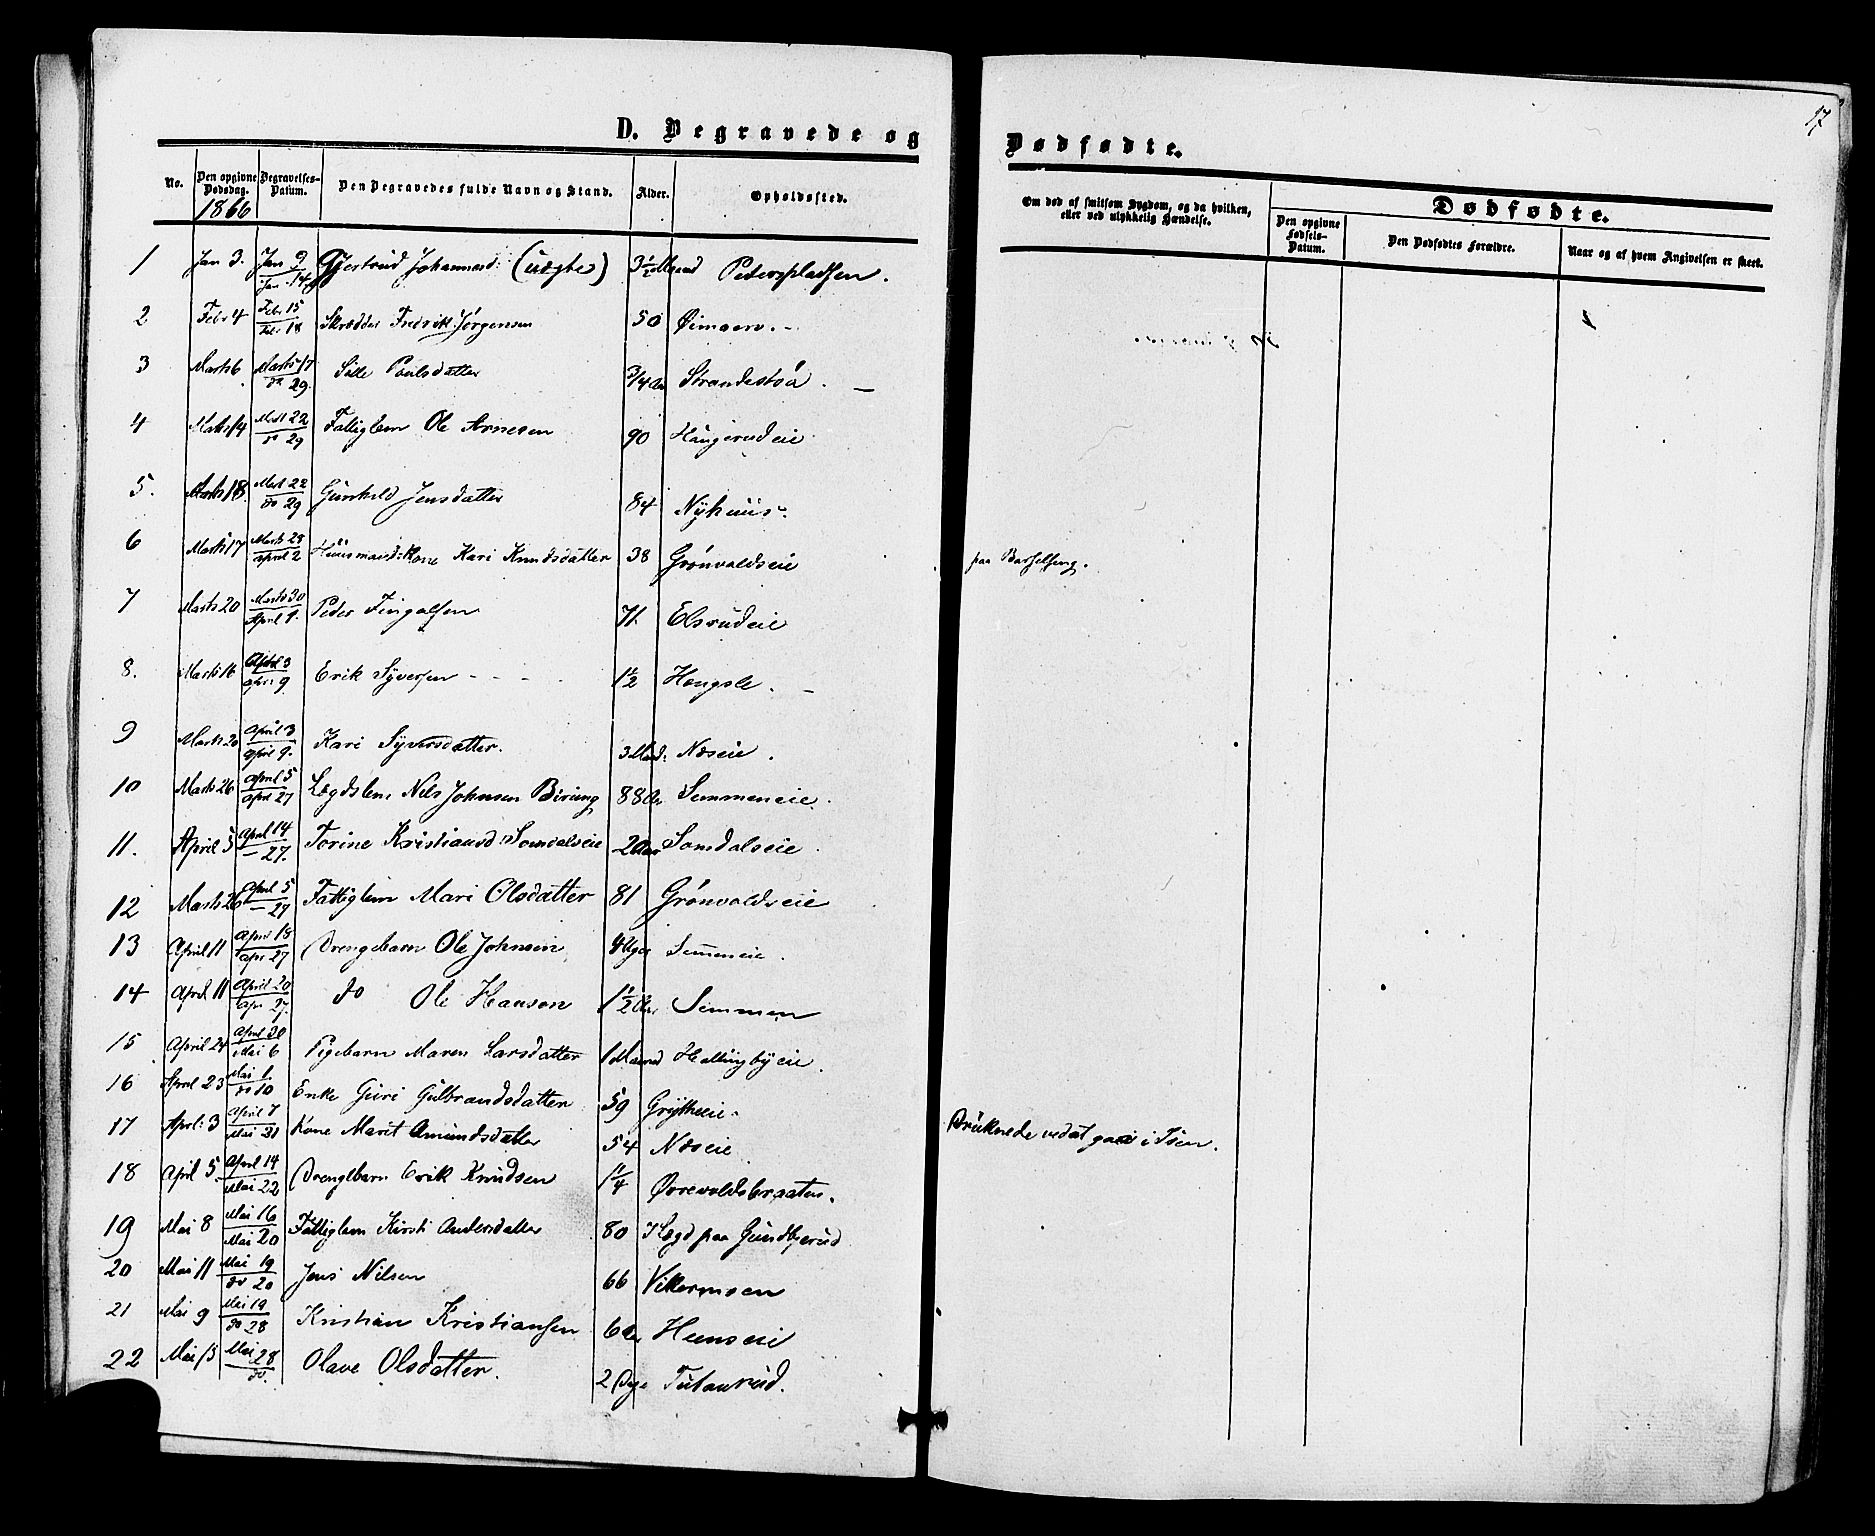 D. Begravede og Dødfødte.
17
No. | Den opgivne Dødsdag. | Begravelses-Datum. | Den Begravedes fulde Navn og Stand. | Alder. | Opholdssted. | Om død af smitsom Sygdom, og da hvilken, eller ved ulykkelig Hændelse. | Dødfødte.
Den opgivne Fødsels-Datum. | Den Dødfødtes Forældre. | Naar og af hvem Angivelsen er skeet.
1866
1 Jan 3. Jan 9 Jan 14 Gjertrud Johannesd: (uægte) 3 1/2 Maaned Peterspladsen.
2 Febr 4 Febr 15 Febr 18 Skrædder Fredrik Jørgensen 50
3 Marts 6 Marts 17 do 29. Paulsdatter 3/4 Aar
4 Marts 14 Mart 22 do 29 Fattiglem Ole Arnesen 90 Haugerudeie
5. Marts 18. Mart 22 do 29 Gunhild Jensdatter 84 Nyhuus.
6 Marts 17 Marts 28 april 2 Huusmands Kone Kari Knudsdatter 38 Grønvoldseie paa Barselseng.
7 Marts 20 Marts 30 April 9. Peder Fingalsen 71. Elsrudeie
8. Marts 16 April 3 april 9 Erik Syversen 1 1/2
9 Marts 20 April 3 april 9. Kari Syversdatter. 3 Maad: Næseie.
10 Marts 26 april 5 april 27 Lægdslem Nils Johnsen Birung 88 Aar Semmeneie.
11. April 5 april 14 — 27. Torine Kristiansd: Somdalseie 2 Aar Somdalseie.
12 Marts 26 april 5 — 27 Fattiglem Mari Olsdatter 81 Grønvoldseie
13 April 11 April 18 apr 27 Drengebarn Ole Johnsen 4 Uger Semmeneie.
14 April 11 April 20 apr 27. do Ole Hansen 1 1/2 Aar Semmen
15 April 24 April 30 Mai 6 Pigebarn Maren Larsdatter 1 Maaned Hallingbyeie.
16 April 23 Mai 1 do 10 Enke Guri Gulbrandsdatter 59 Grytheeie.
17 April: 3 april 7 Mai 21 Kone Marit Amundsdatter 54 Næseie Druknede ved at gaae i Isen.
18 April 5. April 14 Mai 22 Drengebarn Erik Knudsen 1 1/4
19 Mai 8 Mai 16 Mai 20 Fattiglem Kirsti Andersdatter 80 Lægd paa Gundbjerud
20 Mai 11 Mai 19 do 20 Jens Nilsen 66 Vikermoen
21 Mai 9 Mai 19 do 28 Kristian Kristiansen 6 Aar Heenseie
22 Mai 13 Mai 28 do. Olave Olsdatter. 2 Dage